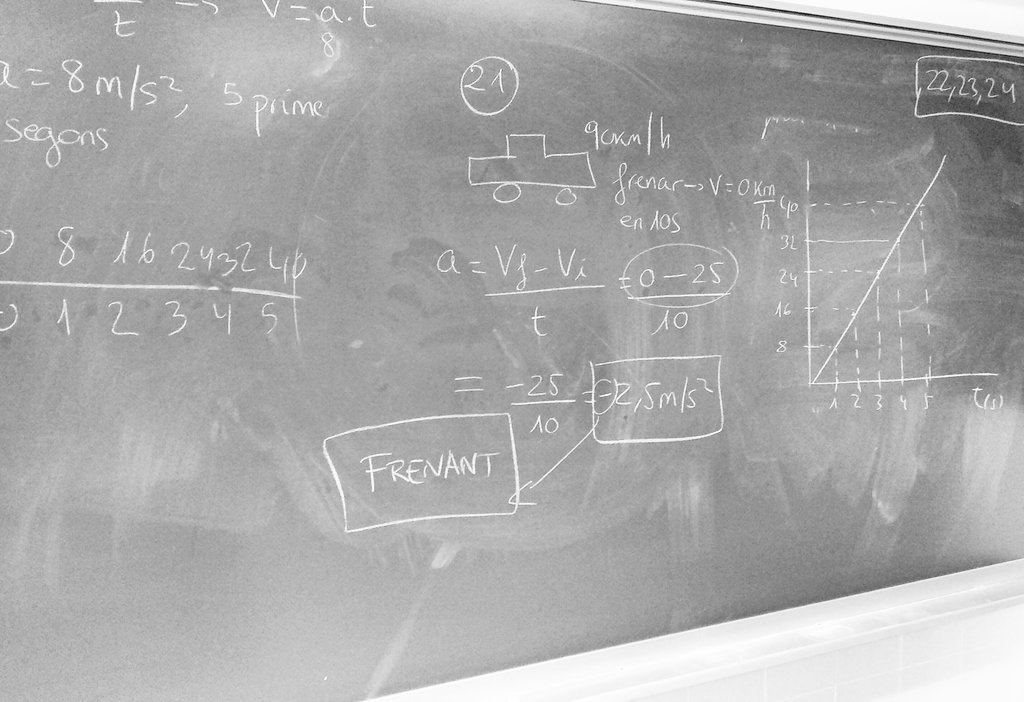 t → V = a.t
8
a = 8 m/s², 5 prime
segons
0 8 16 24 32 40
0 1 2 3 4 5
21
90km/h
frenar → V = 0 km/h
en 10s
a = Vf - Vi / t = 0 - 25 / 10
= -25 / 10 = -2,5 m/s²
FRENANT
22, 23, 24
40
32
24
16
8
1 2 3 4 5 t(s)